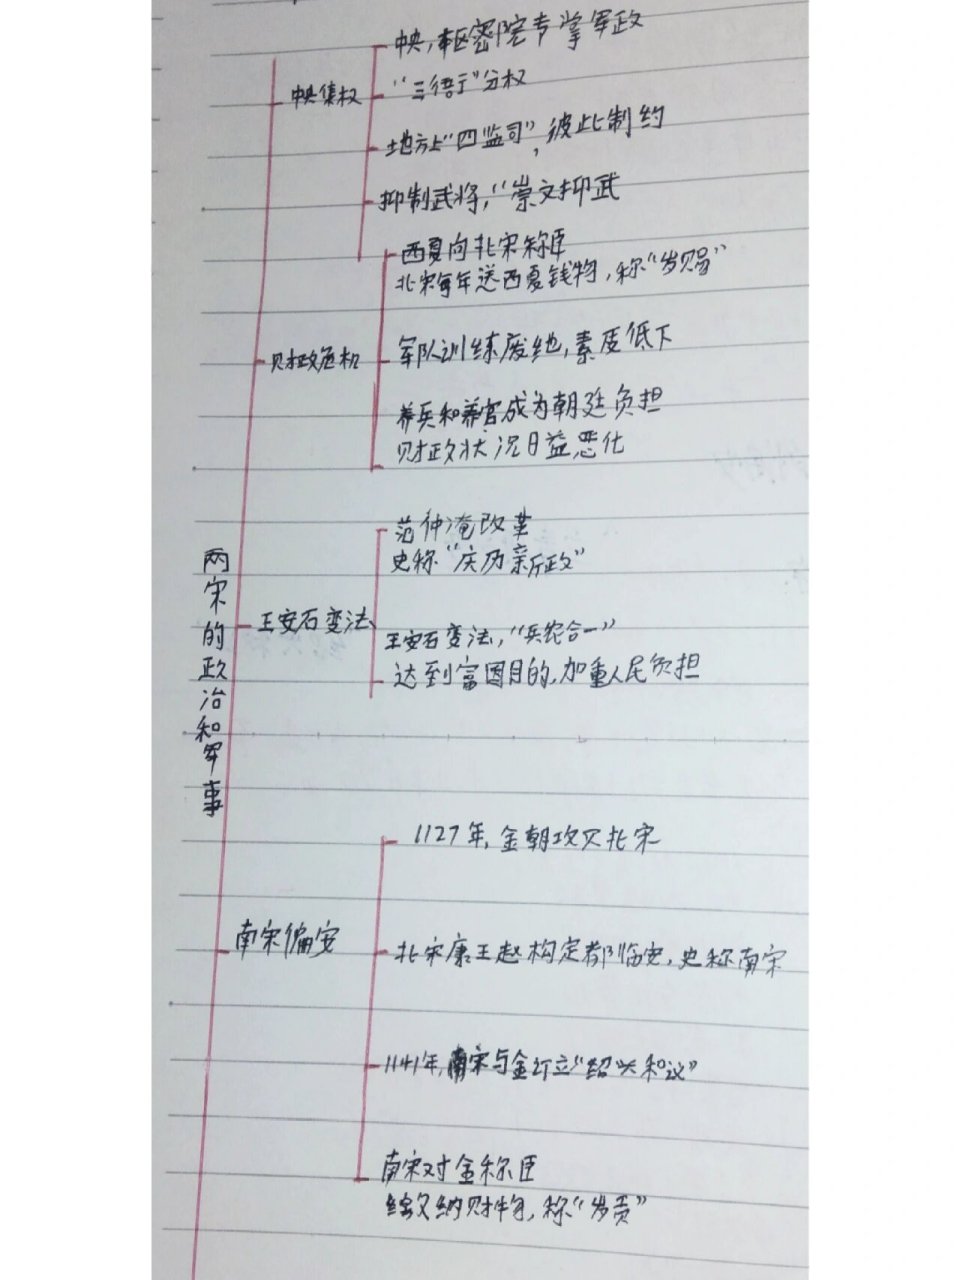 中央集权
中央，枢密院专掌军政
“三衙”分权
地方上“四监司”，彼此制约
抑制武将，“崇文抑武
财政危机
西夏向北宋称臣
北宋每年送西夏钱物，称“岁赐”
军队训练废弛，素质低下
养兵和养官成为朝廷负担
财政状况日益恶化
两宋的政治和军事
王安石变法
范仲淹改革
史称“庆历新政”
王安石变法，“兵农合一”
达到富国目的，加重人民负担
南宋偏安
1127年，金朝攻灭北宋
北宋康王赵构定都临安，史称南宋
1141年，南宋与金订立“绍兴和议”
南宋对金称臣
缴纳财物，称“岁贡”